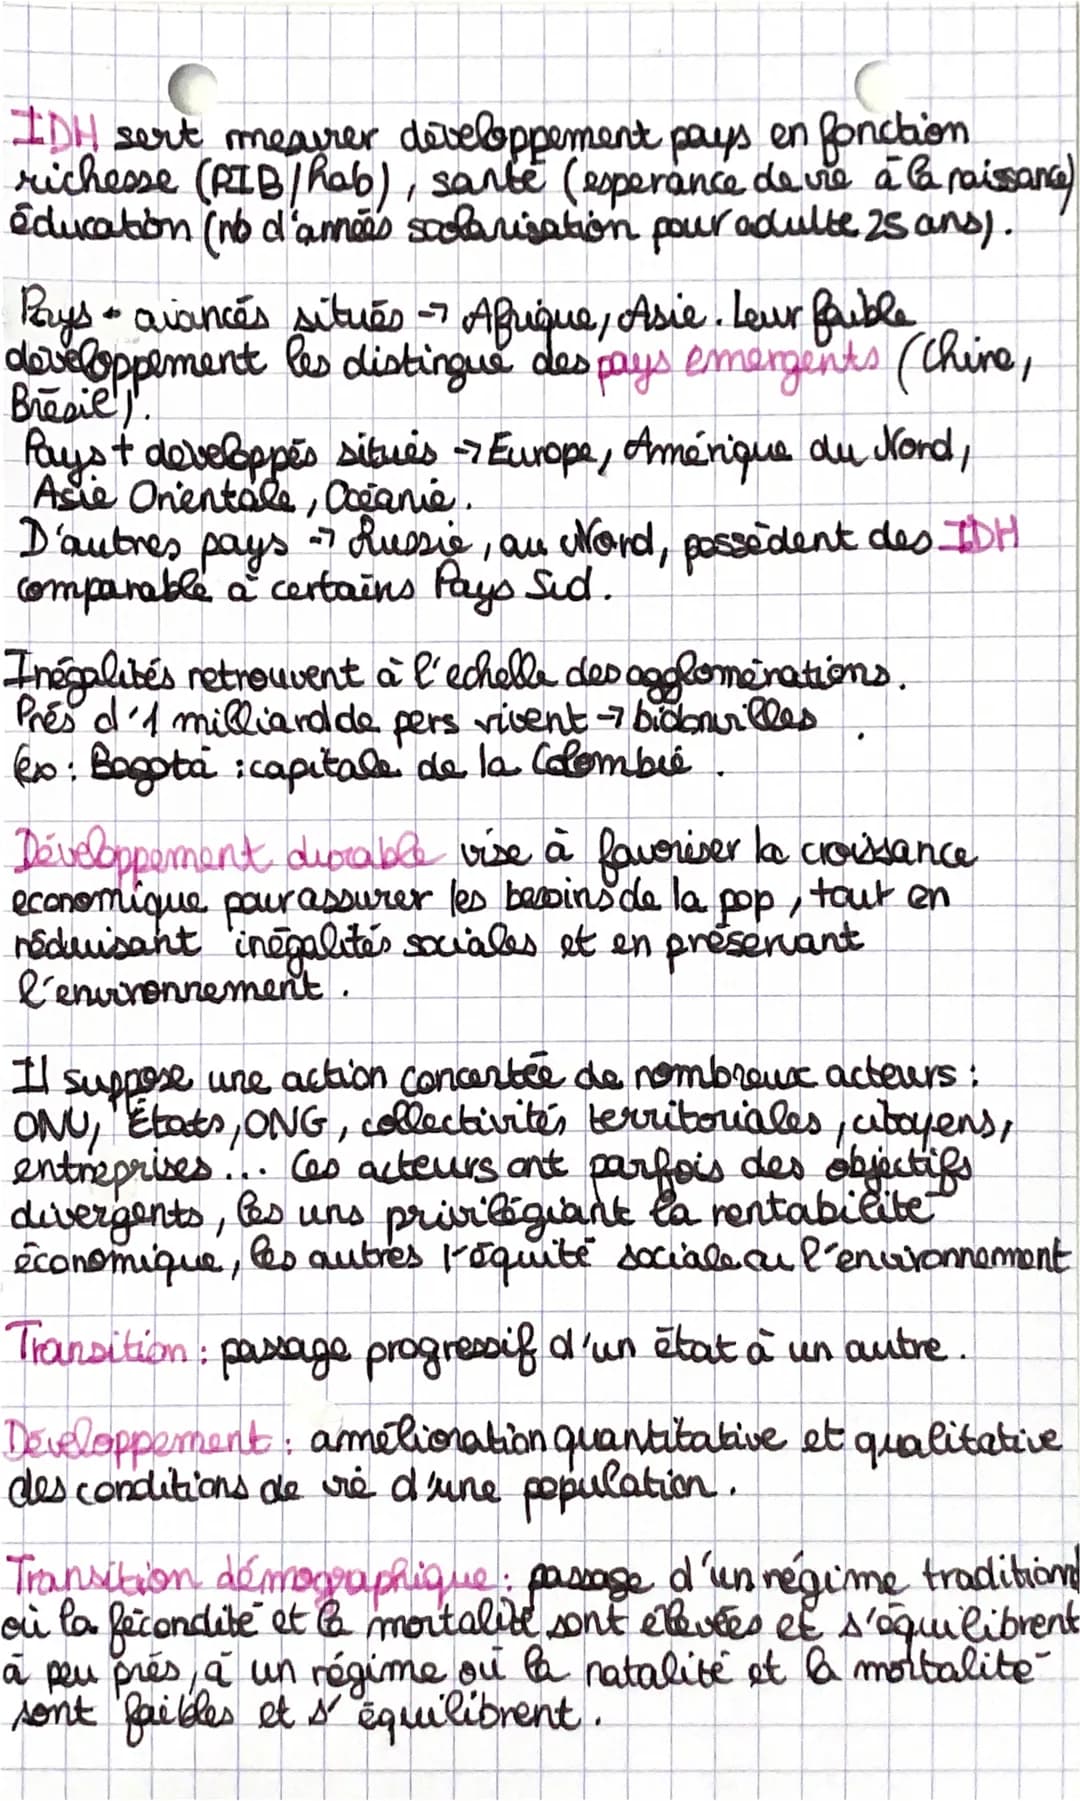 IDH sert mesurer développement pays en fonction
richesse (PIB/hab), santé (esperance de vie à la naissance)
éducation (nb d'années scolarisation pour adulte 25 ans).
Pays - avancés situés → Afrique, Asie. Leur faible
developpement les distingue des pays emergents (Chine,
Brésil).
Pays + developpés situés → Europe, Amérique du Nord,
Asie Orientale, Océanie.
D'autres pays → Russie, au Nord, possèdent des IDH
comparable à certains Pays Sud.
Inégalités retrouvent à l'echelle des agglomérations.
Près d'1 milliard de pers vivent → bidonvilles
Ex : Bogota : capitale de la Colombie.
Développement durable vise à favoriser la croissance
economique pour assurer les besoins de la pop, tout en
réduisant inégalités sociales et en préservant
l'environnement.
Il suppose une action concertée de nombreux acteurs :
ONU, États, ONG, collectivités territoriales, citoyens,
entreprises... Ces acteurs ont parfois des objectifs
divergents, les uns privilégiant la rentabilité
économique, les autres l'équité sociale ou l'environnement
Transition : passage progressif d'un état à un autre.
Développement : amélioration quantitative et qualitative
des conditions de vie d'une population.
Transition démographique : passage d'un régime traditionnel
où la fécondité et la mortalité sont élevées et s'équilibrent
à peu près, à un régime où la natalité et la mortalité
sont faibles et s'équilibrent.